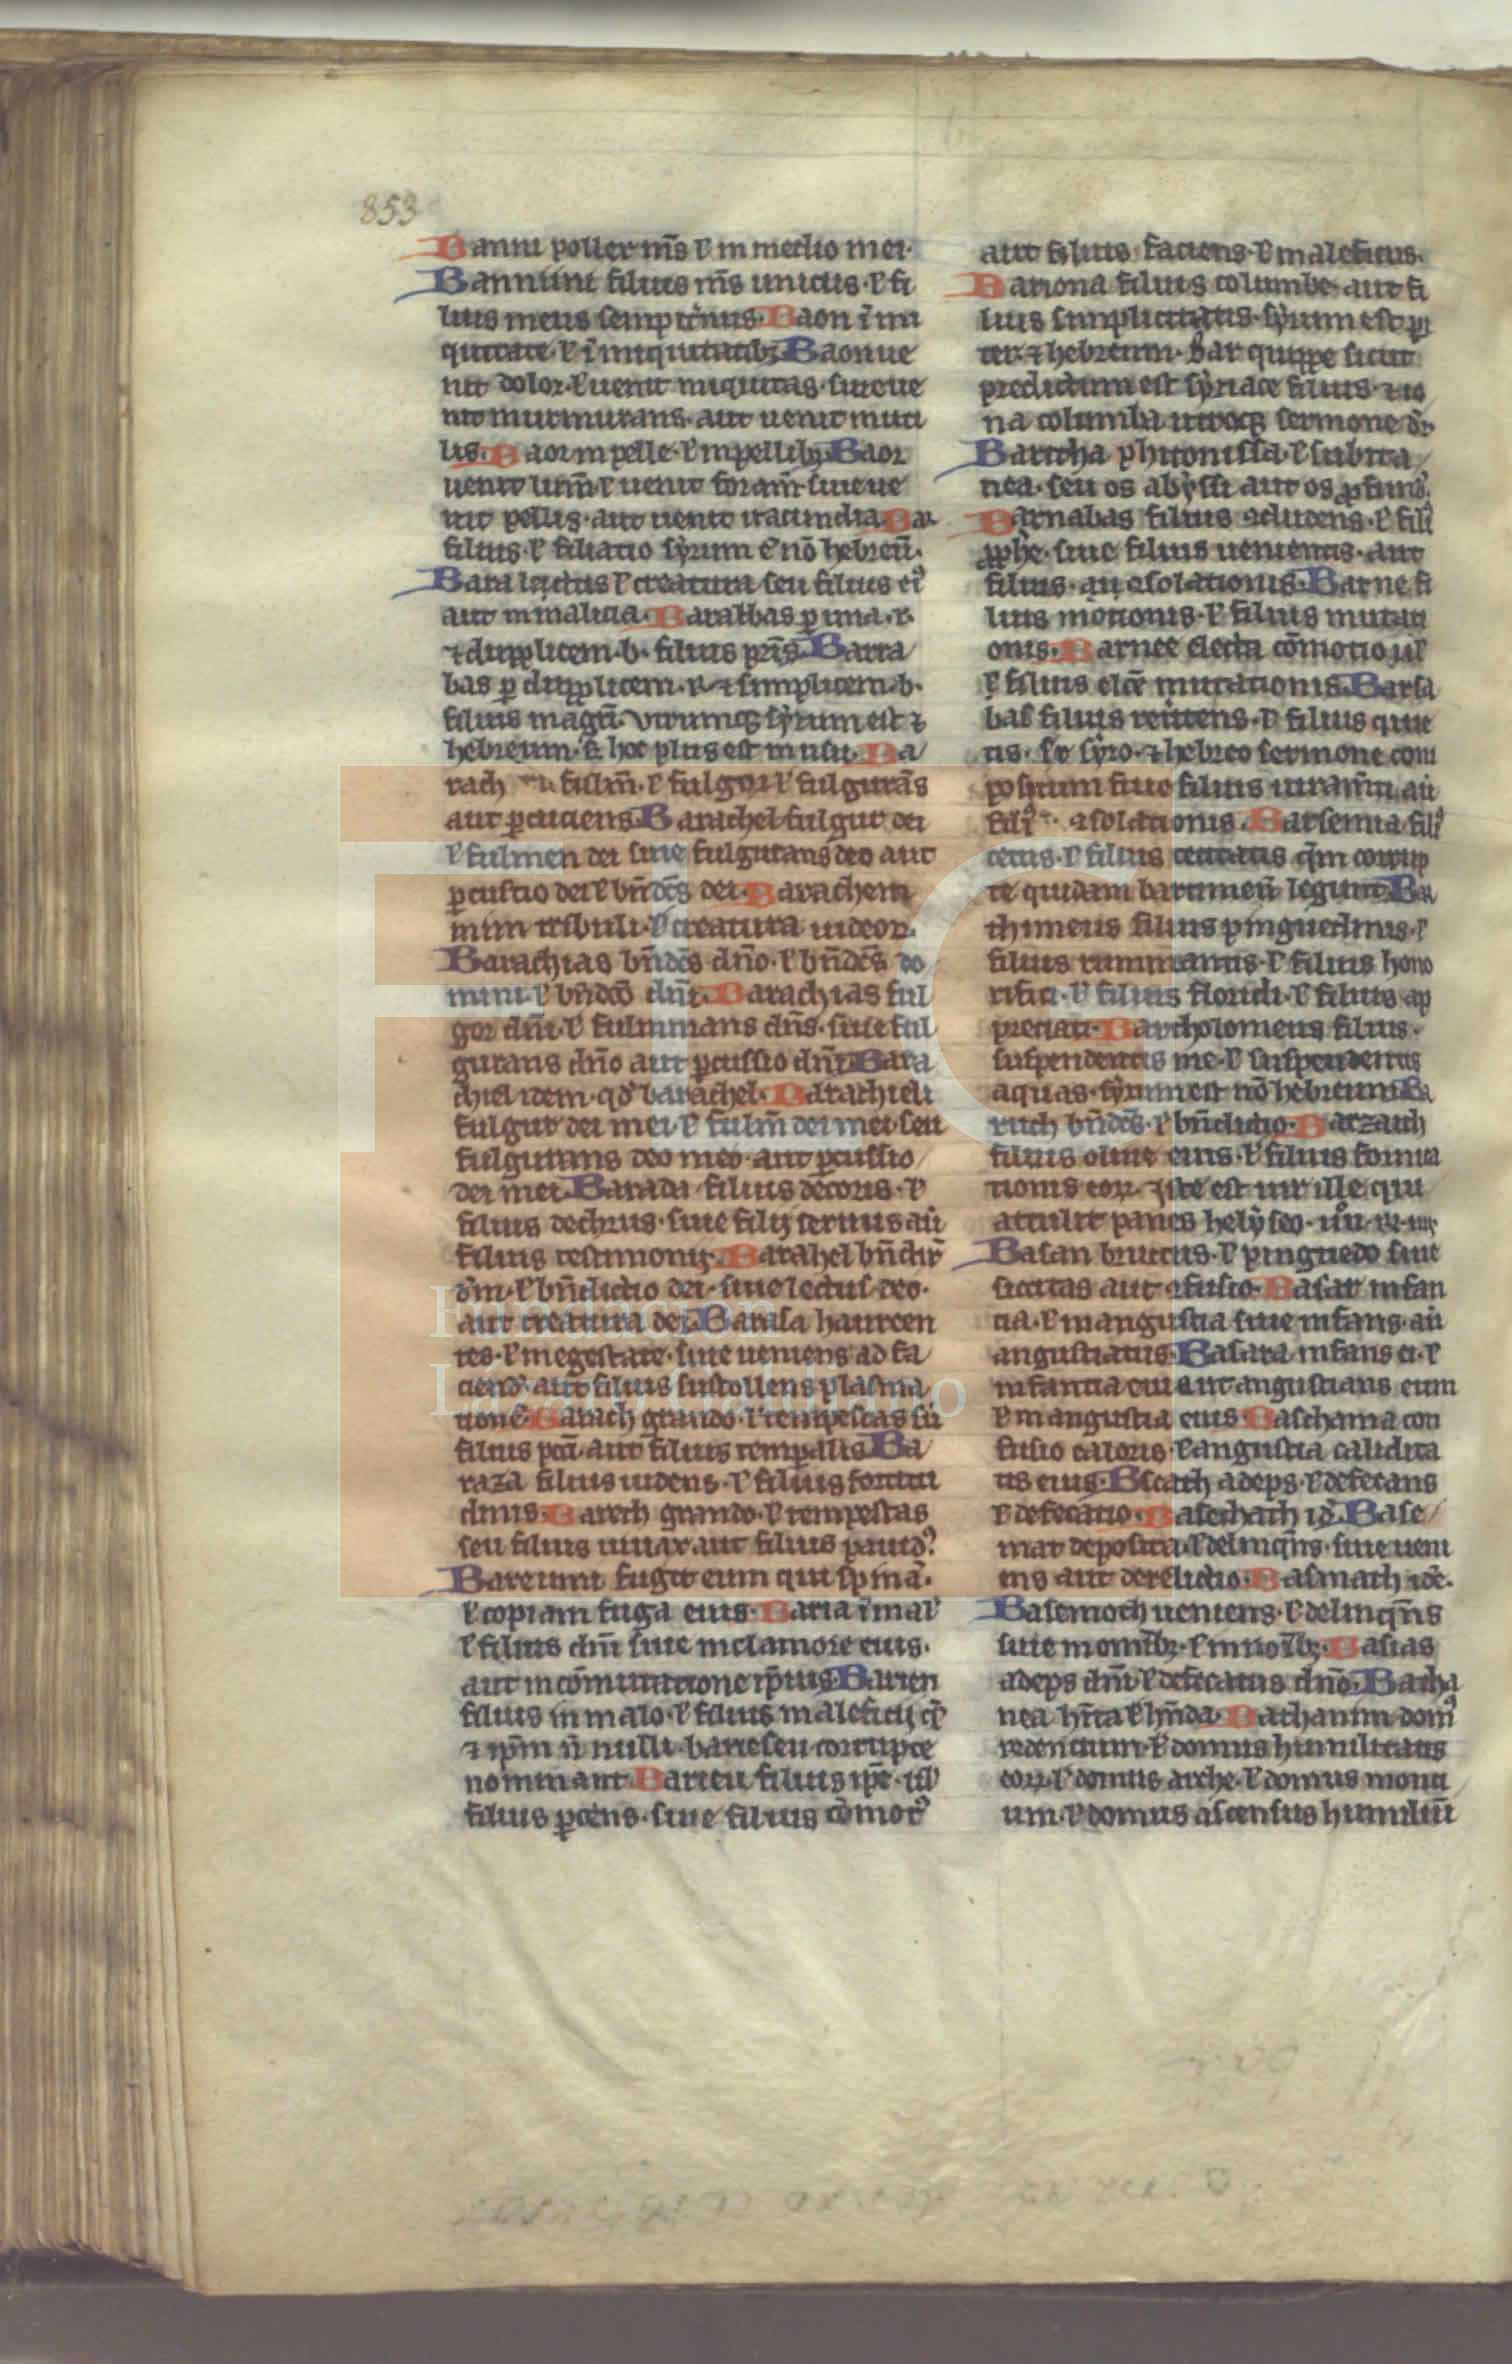 853
Banni pollex mr̄s ł in medio mei·
Bannuni filius mr̄s unicus· ł fi
lius meus sempit̄nus· Baon ī ini
quitate· ł ī iniquitatibꝫ Baonue
nit dolor· ł uenit iniquitas· siue ue
nit murmurans· aut uenit inuti
lis· Baor in pelle· ł in pellibꝫ Baor
uenit lum̄· ł uenit foram̄· siue ue
nit pellis· aut uenit iracundia· Bar
filius· ł filiatio syrum ē nō hebreū·
Bara lectus ł creatura seu filius eiꝰ
aut in malicia· Barabbas ꝑ una· r·
⁊ dupplicem· b· filius pr̄is· Barra
bas ꝑ dupplicem· r· ⁊ simplicem· b·
filius magr̄i· Utrumqꝫ syrum est ⁊
hebreum· ꝫ hoc plus est in usu· Ba
rach fulm̄· ł fulgor ł fulgurās
aut ꝑcutiens Barachel fulgur dei
ł fulmen dei siue fulgurans deo aut
ꝑcussio dei ł bn̄dcs̄ dei· Barachem
mim tribuli· ł creatura iudeor·
Barachias bn̄dcs̄ dn̄o· ł bn̄dcs̄ do
mini· ł bn̄dco dn̄i· Barachias ful
gor dn̄i· ł fulminans dn̄s· siue ful
gurans dn̄o aut ꝑcussio dn̄i Bara
chiel idem· qđ barachel· Barachieli
fulgur dei mei· ł fulm̄ dei mei· seu
fulgurans deo meo· aut ꝑcussio
dei mei· Baradu filius decoris· ł
filius dechrus· siue filij
filius testimonij· Barahel bn̄dix̄
dm̄· ł bn̄dictio dei· siue lectus deo·
aut creatura dei· Barasa haurien
tes· ł in egestate· siue ueniens ad fa
ciend· aut filius sustollens plasma
tione· Barach grando· ł tempestas siū
filius pcī· aut filius Ba
raza filius uidens· ł filius fortitu
dinis· Barech grando· ł tempestas
seu filius aut filius
Bareumi fugit eum qui spinā·
ł copiam fuga eius· Baria ī mał
ł filius dm̄ siue in clamore eius·
aut in cōmutatione ip̄ius Barien
filius in malo· ł filius maleficij
⁊ ip̄m n̄ nulli· barieseu corrupte
nominant· Barieu filius ip̄e·
filius ꝑcēns· siue filius cōmorꝰ
aut filius faciens· ł maleficus·
Bariona filius columbe· aut fi
lius simplicitatis· syrum est ꝑi
ter ⁊ hebreum· Bar quippe sicut
predictum est syriace filius· ⁊ io
na columba utroqꝫ sermone dr̄·
Baricha phitonissa· ł subita
nea· seu os abyssi aut os ꝓfund
Barnabas filius ꝯcludens· ł filiꝰ
ꝓphe· siue filius uenientis· aut
filius· ꝯsolationis· Barne fi
lius motionis· ł filius mutati
onis· Barnee electa cōmotio
ł filius elc̄e mutationis· Barsa
bas filius reuitens· ł filius quie
tis· s syro· ⁊ hebreo sermone com
positum siue filius aū
filiꝰ ꝯsolationis· Barsemia filiꝰ
cecus· ł filius cecitatis qm̄ corrup
te quidam barumeū legunt· Bar
thimeus filius pinguedinis· ł
filius ruminantis· ł filius hono
rifici· ł filius floridi· ł filius ap
preciati· Bartholomeus filius·
suspendentis me· ł suspendentis
aquas· syrum est nō hebreum· Ba
ruch bn̄dcs̄· ł bn̄dictio· Barzaich
filius oliue eius· ł filius fornica
tionis eor· ⁊ iste est uir ille qui
attulit panes helyseo·
Basan bruccus· ł pinguedo siue
siccitas aut ꝯfusio· Basar infan
tia· ł in angustia siue infans· aū
angustiatus· Basara infans ei· ł
infantia cui aut angustians eum
ł in angustia eius· Baschama con
fusio caloris· ł angustia calidita
tis eius· Bscath adeps· ł defecans
ł defecatio· Basechath id̄· Base
mat deposita· ł delinqn̄s· siue ueni
ens aut derelictio· Basmath idē·
Basemoth ueniens· ł delinqn̄s
siue· Basias
adeps dn̄i· ł defecatus dn̄o· Batha
nea hn̄ta ł hn̄da· Bathanim domꝰ
redentium· ł domus humilitatis
eor· ł domus arche· ł domus monti
um· ł domus ascensus humiliū
FLG
Fundación
Lázaro Galdiano